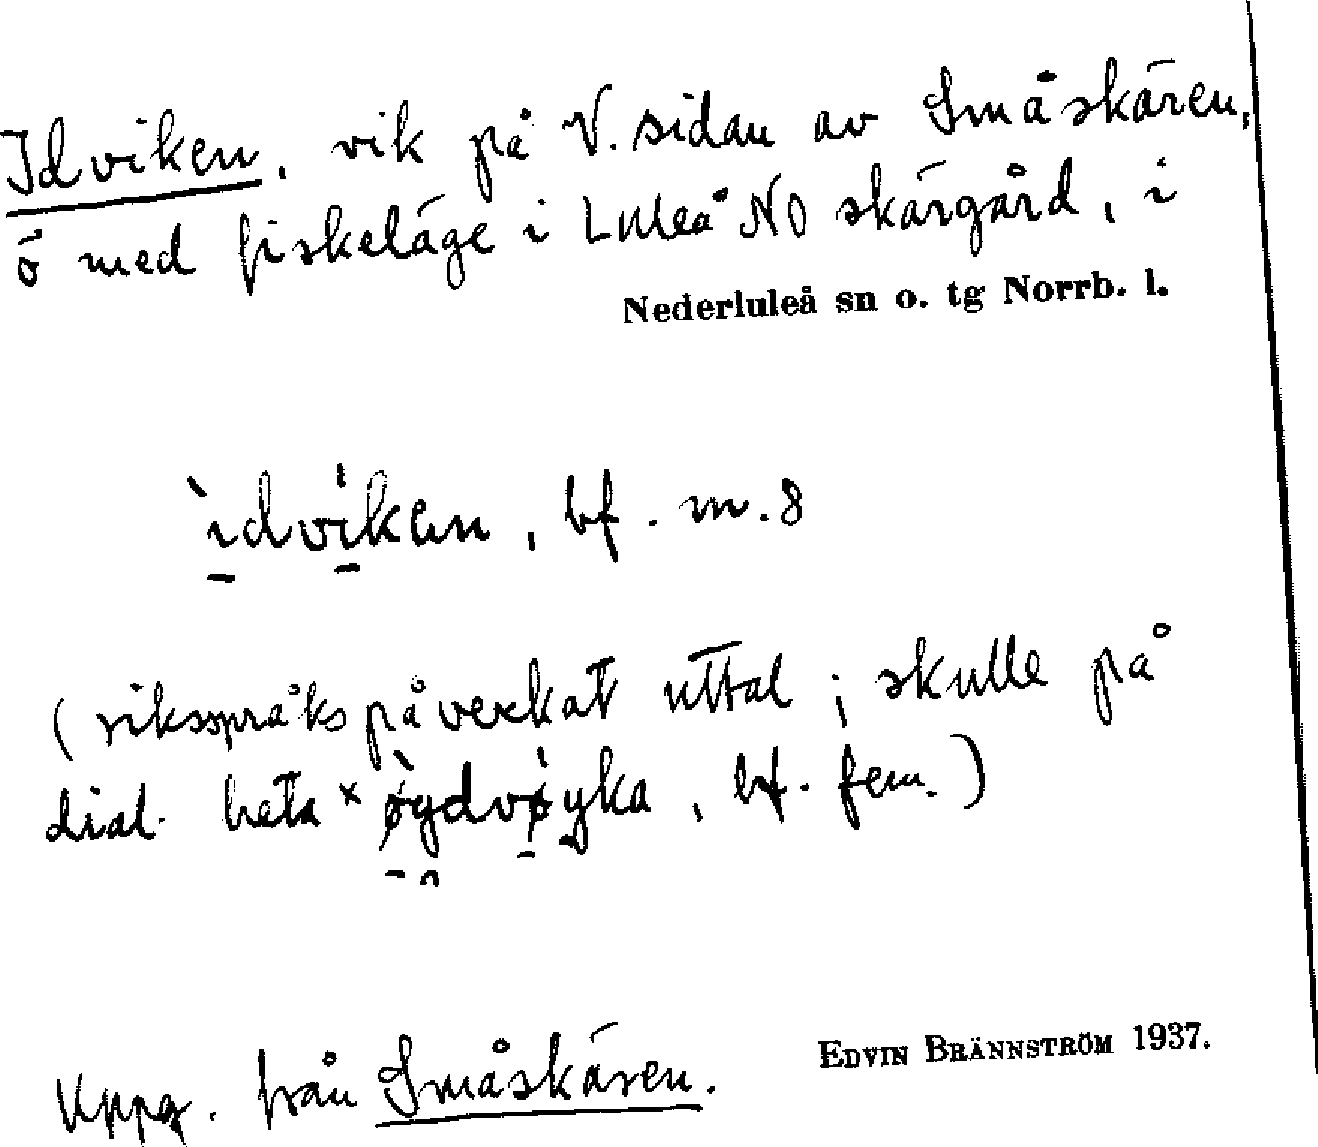 Idviken, vik på V. sidan av Småskären,
ö med fiskeläge i Luleå NO skärgård, i
Nederluleå sn o. tg Norrb. l.
ìdvi̍kən, bf. m. 8
(riksspråkspåverkat uttal; skulle på
dial. heta ×ø̀ydvø̍yka, bf. fem.)
Uppg. från Småskären.
EDVIN BRÄNNSTRÖM 1937.